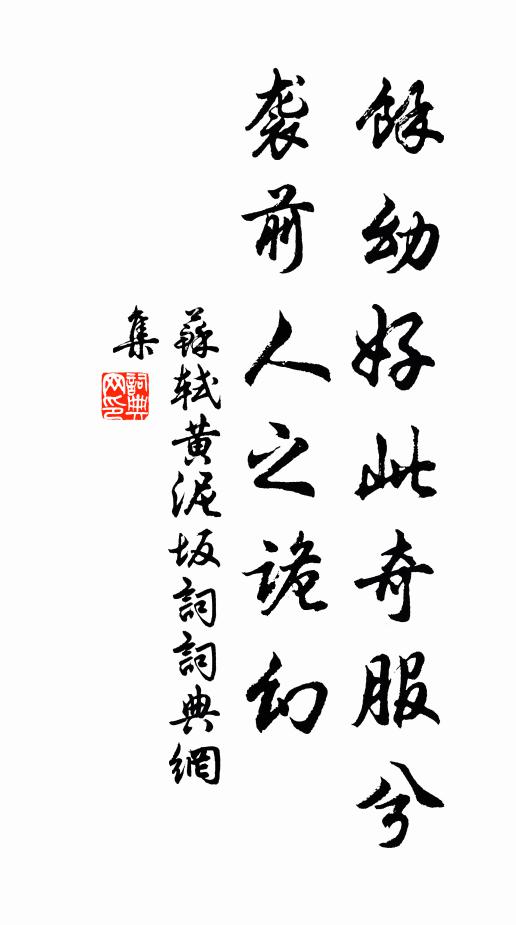 餘幼好此奇服兮
袭前人之詭幻
蘇軾黄泥坂詞詞典網
集
詞典
网印